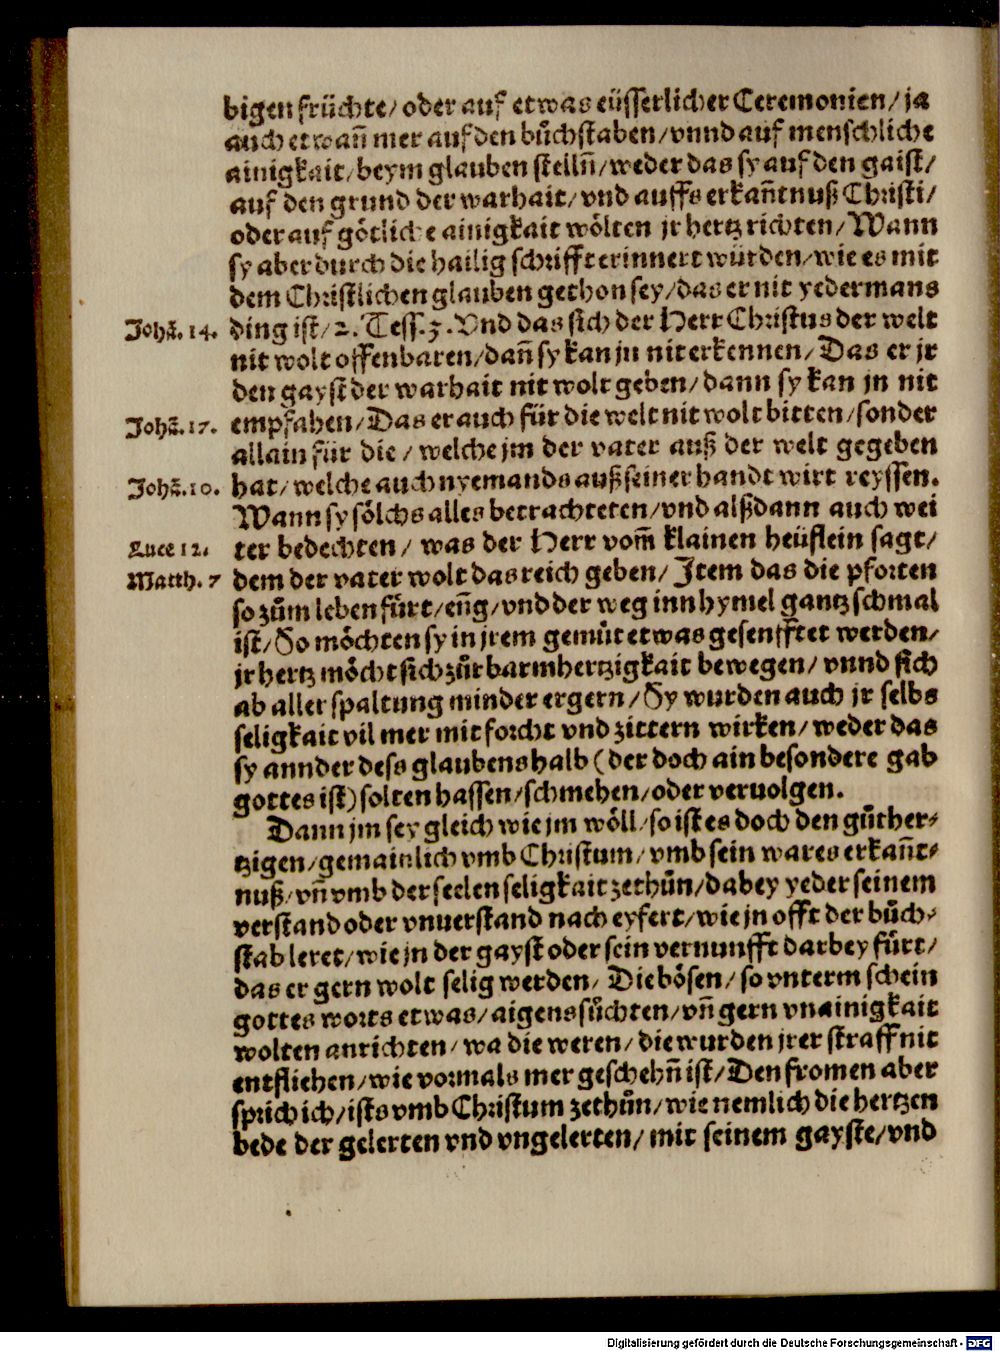 bigen früchte/ oder auf etwas eüsserlicher Ceremonien/ ja
auch etwañ mer auf den bůchstaben/ vnnd auf menschliche
ainigkait/ beym glauben stelln̄/ weder das sy auf den gaist/
auf den grund der warhait/ vnd auffs erkañtnuß Christi/
oder auf götliche ainigkait wölten jr hertz richten/ Wann
sy aber durch die hailig schrifft erinnert würden/ wie es mit
dem Christlichen glauben gethon sey/ das er nit yedermans
Johā. 14. ding ist/ 2. Tess. 3. Vnd das sich der Herr Christus der welt
nit wolt offenbaren/ dañ sy kan jn nit erkennen/ Das er jr
den gayst der warhait nit wolt geben/ dann sy kan jn nit
Johā. 17. empfahen/ Das er auch für die welt nit wolt bitten/ sonder
allain für die/ welche jm der vater auß der welt gegeben
Johā. 10. hat/ welche auch nyemands auß seiner handt wirt reyssen.
Wann sy sölchs alles betrachteten/ vnd alßdann auch wei
Luce 12. ter bedechten/ was der Herr vom̄ klainen heüflein sagt/
Matth. 7 dem der vater wolt das reich geben/ Item das die pforten
so zům leben fürt/ eñg/ vnd der weg inn hymel gantz schmal
ist/ So möchten sy in jrem gemüt etwas gesenfftet werden/
jr hertz möcht sich zůr barmhertzigkait bewegen/ vnnd sich
ab aller spaltung minder ergern/ Sy wurden auch jr selbs
seligkait vil mer mit forcht vnd zittern wirken/ weder das
sy annder dess glaubens halb (der doch ain besondere gab
gottes ist) solten hassen/ schmehen/ oder veruolgen.
Dann jm sey gleich wie jm wöll/ so ist es doch den gůther⸗
tzigen/ gemainlich vmb Christum/ vmb sein wares erkañt⸗
nuß/ vñ vmb der seelen seligkait zethůn/ dabey yeder seinem
verstand oder vnuerstand nach eyfert/ wie jn offt der bůch⸗
stab leret/ wie jn der gayst oder sein vernunfft darbey fürt/
das er gern wolt selig werden/ Die bösen/ so vnterm schein
gottes worts etwas/ aigens sůchten/ vñ gern vnainigkait
wolten anrichten/ wa die weren/ die wurden jrer straff nit
entfliehen/ wie vormals mer geschehñ ist/ Den fromen aber
sprich ich/ ists vmb Christum zethůn/ wie nemlich die hertzen
bede der gelerten vnd vngelerten/ mit seinem gayste/ vnd
Digitalisierung gefördert durch die Deutsche Forschungsgemeinschaft - DFG